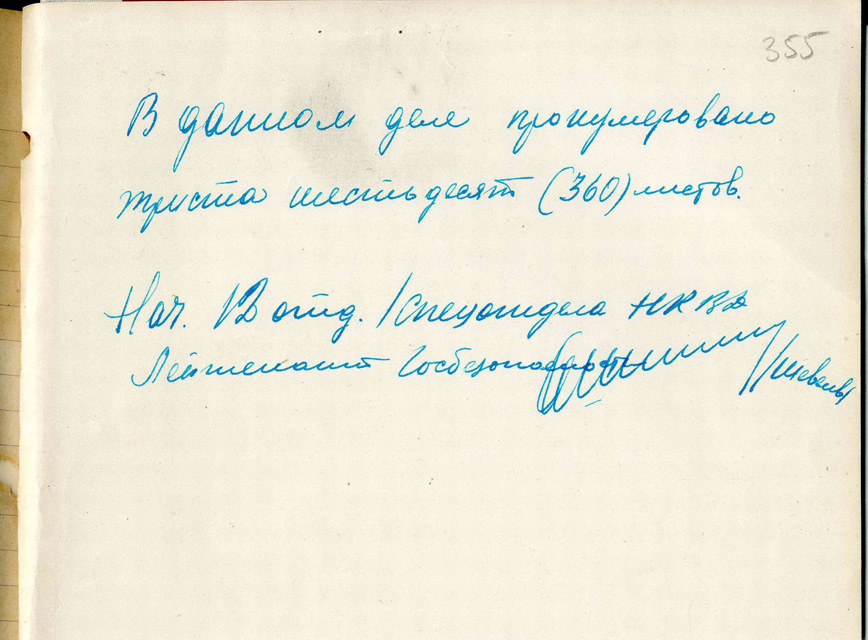 355
В данном деле пронумеровано
триста шестьдесят (360) листов.
Нач. 12 отд. 1 спецотдела НКВД
Лейтенант Госбезопасности